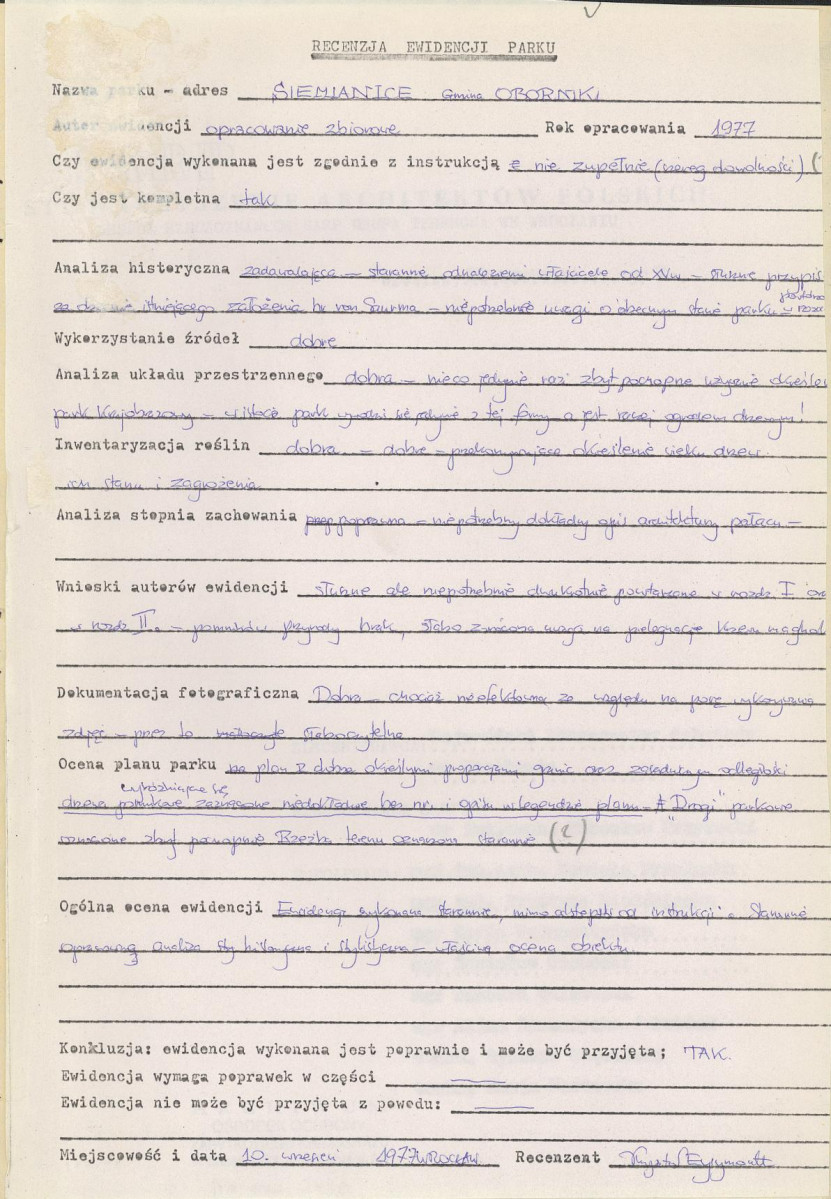 RECENZJA EWIDENCJI PARKU
Nazwa parku - adres SIEMIANICE Gmina OBORNIKI
Autor ewidencji opracowanie zbiorowe Rok opracowania 1977
Czy ewidencja wykonana jest zgodnie z instrukcją nie zupełnie (szereg dowolności) (
Czy jest kompletna tak
Analiza historyczna zadawalająca - starannie odnalezieni właściciele od XV w - słuszne przypis
za istniejącego założenia hr von Saurma - niepotrzebnie uwagi o obecnym stanie parku
Wykorzystanie źródeł dobre
Analiza układu przestrzennego dobra - nieco jedynie razi zbyt pochopne użycie określe
park krajobrazowy - w istocie park wywodzi się jedynie z tej formy a jest raczej ogrodem
Inwentaryzacja roślin dobra - dobre - przekonywujące określenie wieku drzew
ich stanu i zagrożenia
Analiza stopnia zachowania poprawna - niepotrzebny dokładny opis architektury pałacu -
Wnioski autorów ewidencji słuszne ale niepotrzebnie dwukrotnie powtarzane w rozdz. I
w rozdz II. - pomników przyrody brak, słabo zwrócona uwaga na pielęgnację
Dokumentacja fotograficzna Dobra - chociaż nieefektowna ze względu na porę wykonywania
zdjęć - przez to słaboczytelna
Ocena planu parku na plan z dobrze określonymi proporcjami granic oraz odległości
wyróżniające się
drzewa zaznaczone niedokładnie bez nr. i opisu w legendzie planu - "Drogi" parkowe
oznaczone zbyt pochopnie Rzeźba terenu starannie (2)
Ogólna ocena ewidencji Ewidencja wykonana starannie, mimo odstępstw od instrukcji. Starannie
opracowana analiza historyczna i stylistyczna - właściwa ocena obiektu.
Konkluzja: ewidencja wykonana jest poprawnie i może być przyjęta; TAK.
Ewidencja wymaga poprawek w części
Ewidencja nie może być przyjęta z powodu:
Miejscowość i data 10. wrzesień 1977 WROCŁAW Recenzent